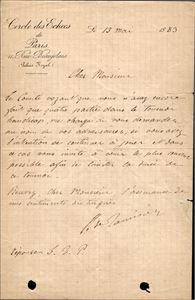 Cercle des Echecs
de
Paris
Le 13 mai 1883
Cher Monsieur
Le Comité voyant que vous n'avez encore
fait que quatre parties dans le tournoi
handicap, me charge de vous demander,
au nom de vos adversaires, si vous avez
l'intention de continuer à jouer. Et dans
ce cas vous invite à jouer le plus souvent
possible, afin de hâter la fin de
ce tournoi.
Recevez, Cher Monsieur, l'assurance de
mes sentiments distingués
Réponse S. V. P.